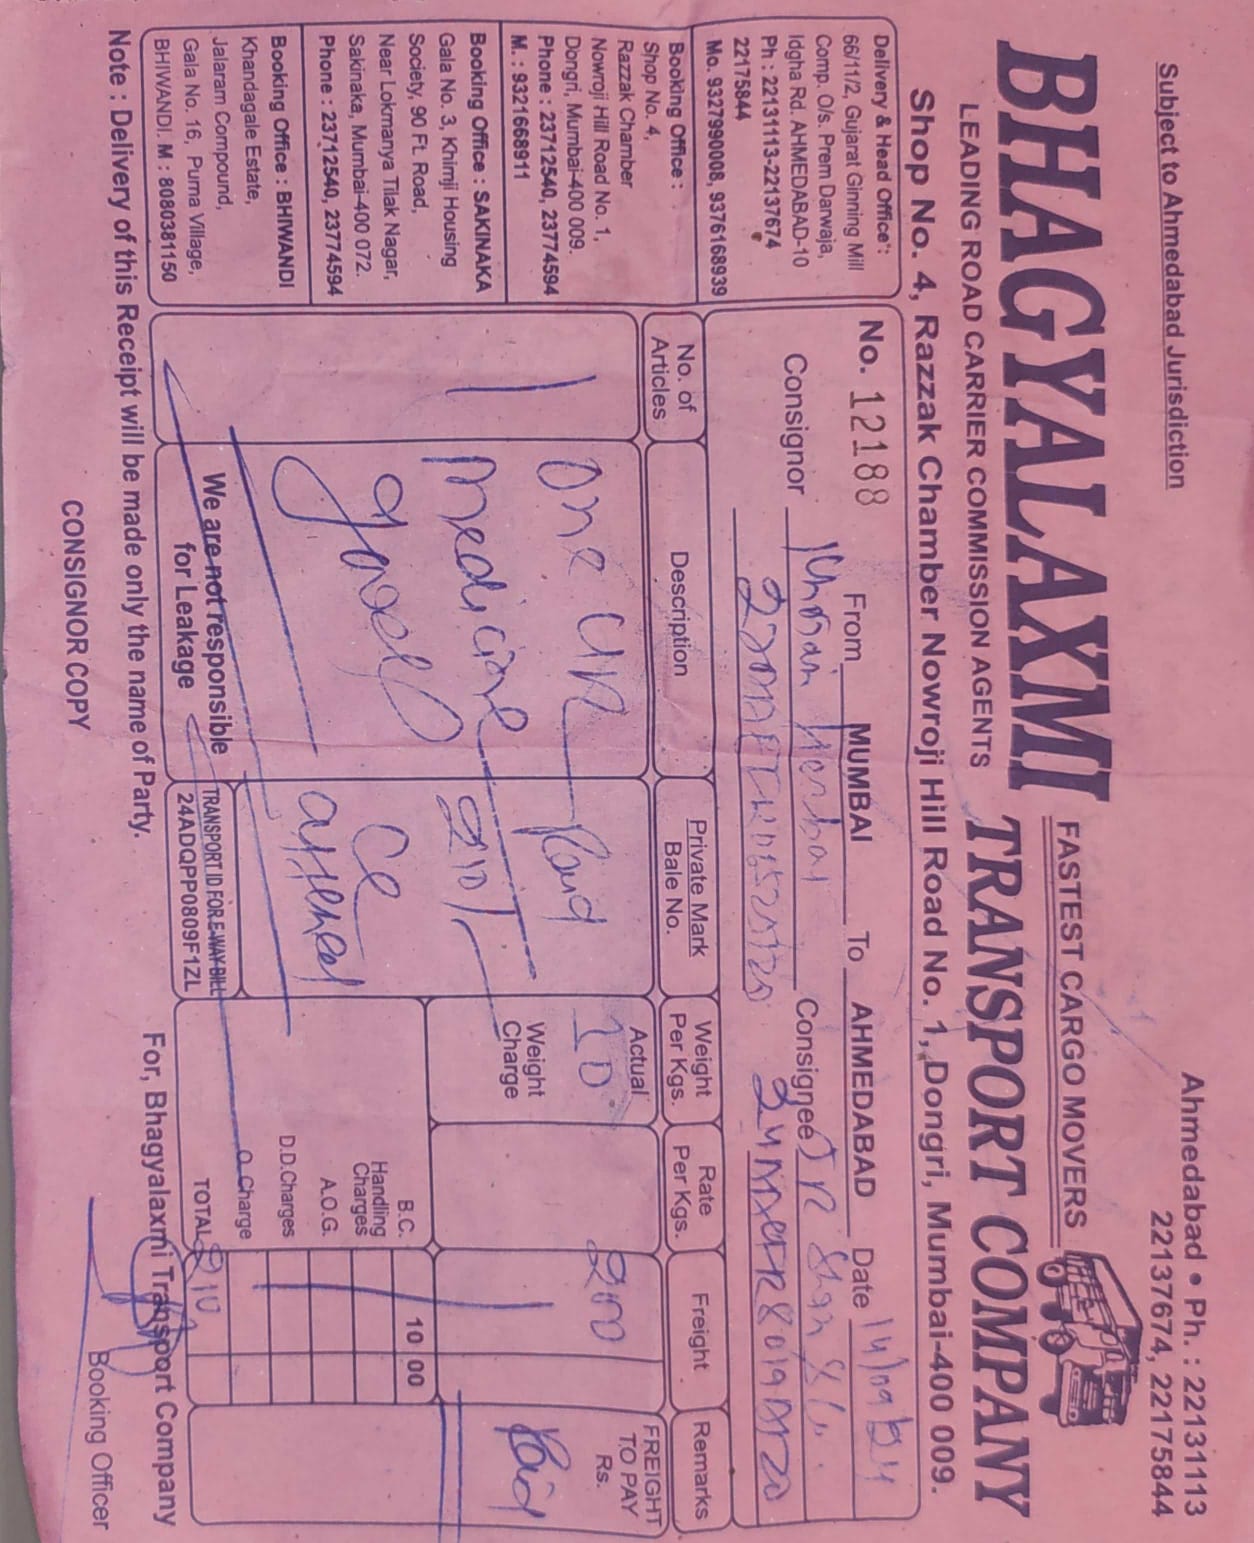 Subject to Ahmedabad Jurisdiction
Ahmedabad • Ph. : 22131113
22137674, 22175844
BHAGYALAXMI
FASTEST CARGO MOVERS
TRANSPORT COMPANY
LEADING ROAD CARRIER COMMISSION AGENTS
Shop No. 4, Razzak Chamber Nowroji Hill Road No. 1, Dongri, Mumbai-400 009.
Delivery & Head Office':
66/11/2, Gujarat Ginning Mill
Comp. O/s. Prem Darwaja,
Idgha Rd. AHMEDABAD-10
Ph : 22131113-22137674
22175844
Mo. 9327990008, 9376168939
Booking Office :
Shop No. 4,
Razzak Chamber
Nowroji Hill Road No. 1,
Dongri, Mumbai-400 009.
Phone : 23712540, 23774594
M. : 9321668911
Booking Office : SAKINAKA
Gala No. 3, Khimji Housing
Society, 90 Ft. Road,
Near Lokmanya Tilak Nagar,
Sakinaka, Mumbai-400 072.
Phone : 23712540, 23774594
Booking Office : BHIWANDI
Khandagale Estate,
Jalaram Compound,
Gala No. 16, Purna Village,
BHIWANDI. M : 8080381150
No. 12188 From MUMBAI To AHMEDABAD Date 14/09/24
Consignor Consignee
No. of Articles Description Private Mark Bale No. Weight Per Kgs. Rate Per Kgs. Freight Remarks
1 one Paid Actual 10 200 FREIGHT TO PAY Rs.
medicine 210/ Weight Charge Paid
goods
B.C. 10 00
Handling Charges
A.O.G.
D.D.Charges
Charge
TOTAL 210
We are not responsible
for Leakage
TRANSPORT ID FOR E-WAY BILL
24ADQPP0809F1ZL
For, Bhagyalaxmi Transport Company
Note : Delivery of this Receipt will be made only the name of Party.
Booking Officer
CONSIGNOR COPY